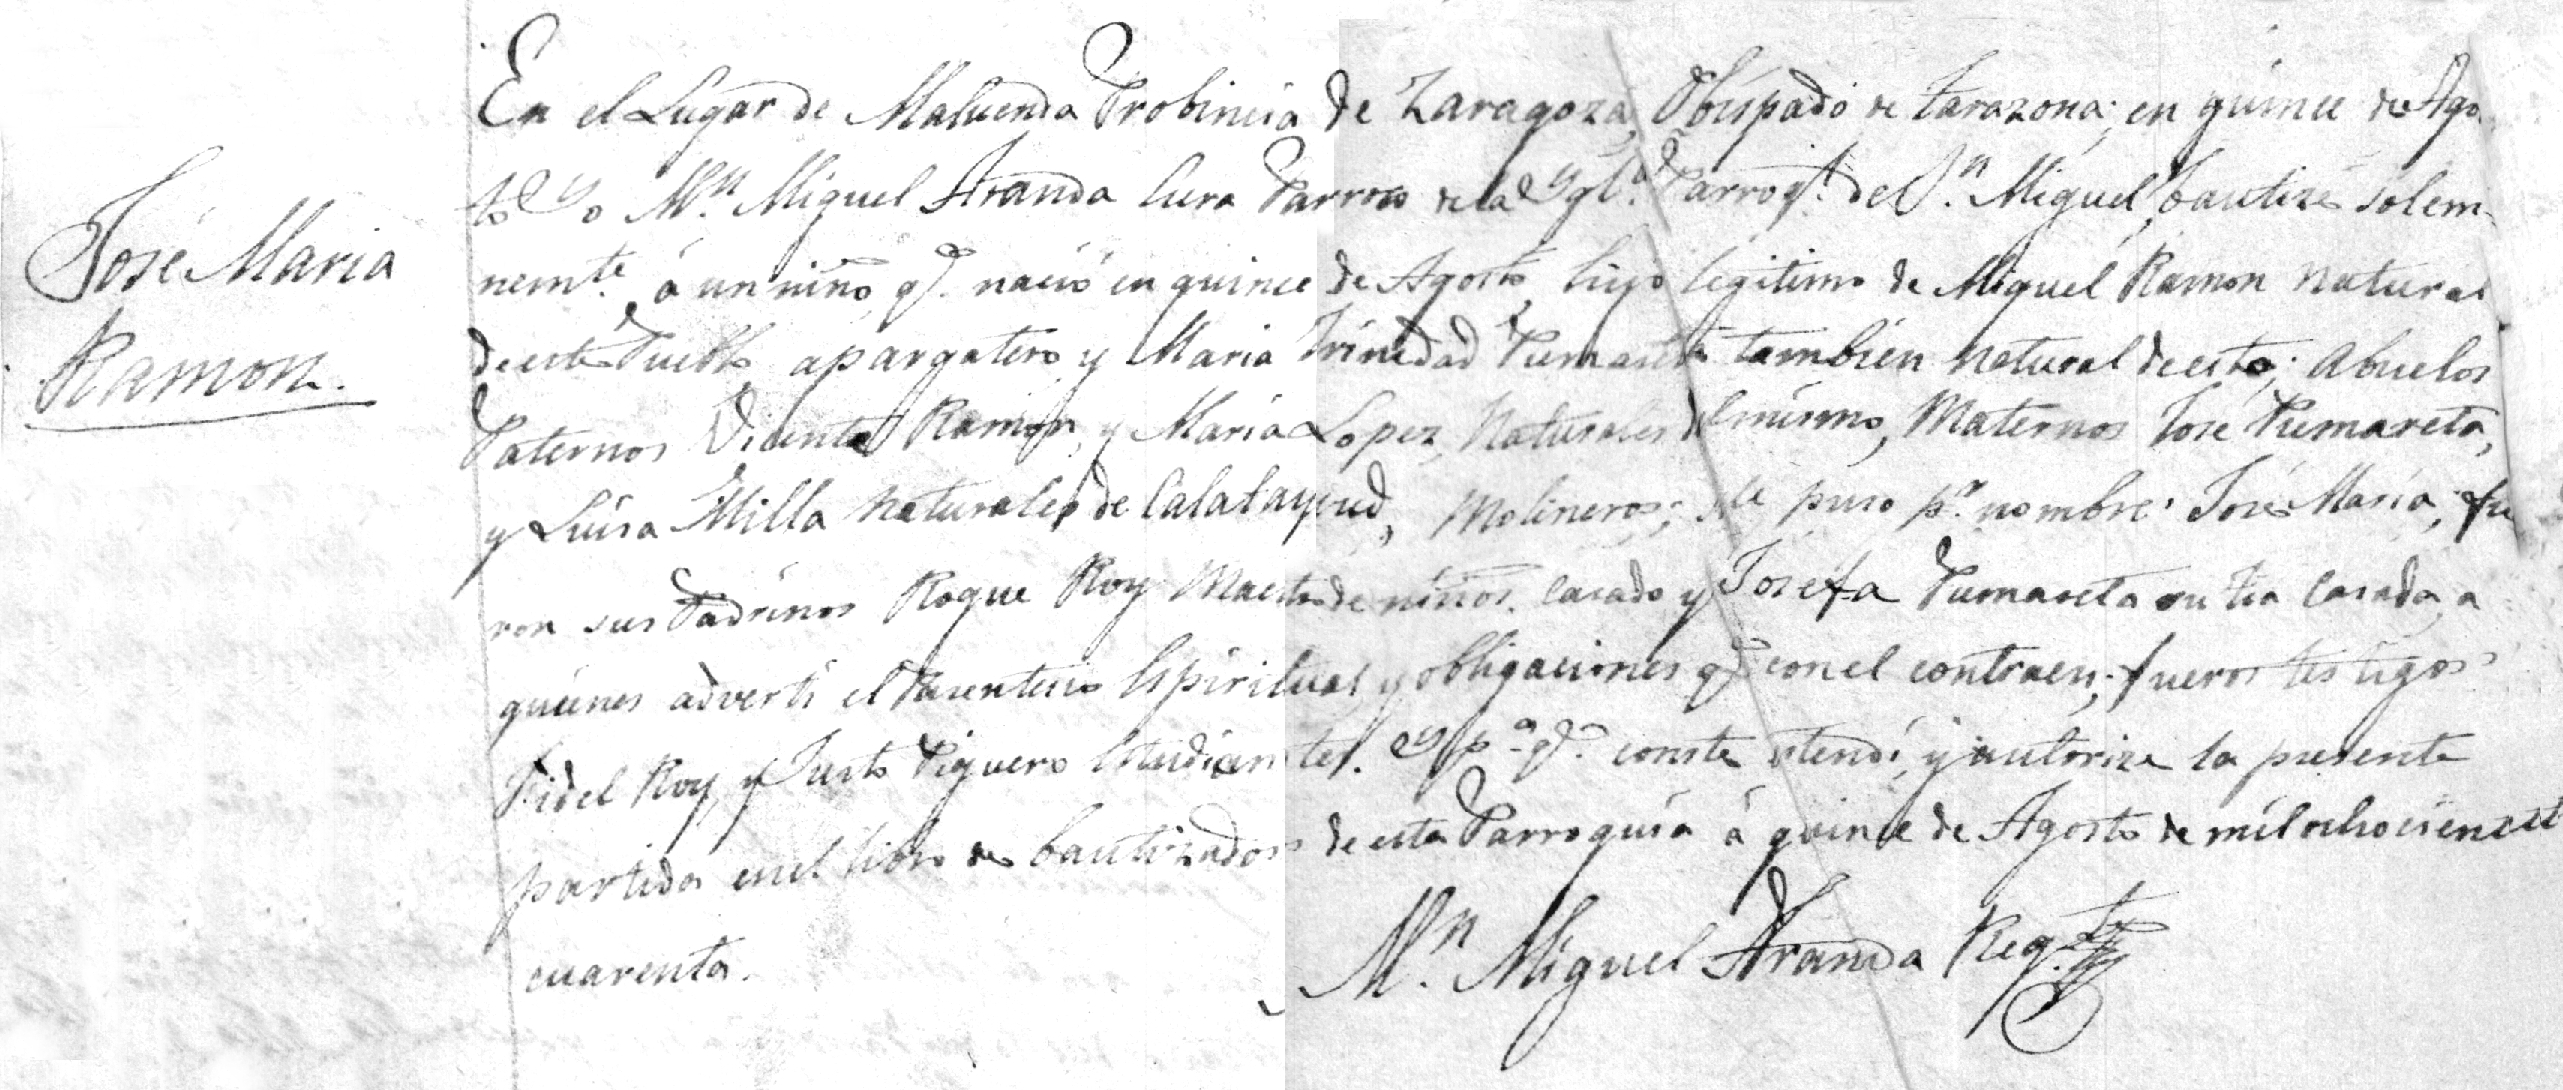 José Maria
Ramon.
En el Lugar de Maluenda Probincia de Zaragoza, Obispado de Tarazona; en quince de Ago
to Yo Mn. Miguel Aranda Cura Parroco de la Ygla. Parroql. de Sn. Miguel, bautizé solem-
nemte. á un niño, qe. nació en quince de Agosto, hijo legitimo de Miguel Ramon natural
de este Pueblo, apargatero y Maria Trinidad Pumareta tambien natural de esto; Abuelos
Paternos Vicente Ramon, y Maria Lopez, Naturales del mismo, Maternos José Pumareta,
y Luisa Milla naturales de Calatayud, Molineros; se le puso pr. nombre José Maria; fue
ron sus Padrinos Roque Roy Maestro de niños, casado y Josefa Pumareta su tia casada, a
quienes advertí el Parentesco Espiritual y obligaciones qe. con el contraen; fueron testigos
Fidel Roy, y Justo Piquero estudiantes. Y pa. qe. conste etendí, y autorize la presente
partida en el libro de bautizados de esta Parroquia á quince de Agosto de mil ochocientos
cuarenta.
Mn. Miguel Aranda Regte.